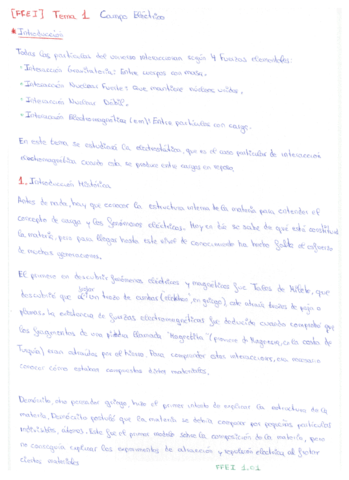 [FFEI] Tema 1 Campo Eléctrico
Introducción
Todas las partículas del universo interaccionan según 4 fuerzas elementales:
• Interacción Gravitatoria: Entre cuerpos con masa.
• Interacción Nuclear Fuerte: Que mantiene núcleos unidos.
• Interacción Nuclear Débil.
• Interacción Electromagnética (em): Entre partículas con carga.
En este tema se estudiará la electrostática, que es el caso particular de interacción
electromagnética cuando esta se produce entre cargas en reposo.
1. Introducción Histórica
Antes de nada, hay que conocer la estructura interna de la materia para entender el
concepto de carga y los fenómenos eléctricos. Hoy en día se sabe de qué está constituida
la materia, pero para llegar hasta este nivel de conocimiento ha hecho falta el esfuerzo
de muchas generaciones.
El primero en descubrir fenómenos eléctricos y magnéticos fue Tales de Mileto, que
descubrió que al frotar trozo de ámbar (elektron, en griego), este atraía trozos de paja o
plumas. La existencia de fuerzas electromagnéticas fue deducida cuando comprobó que
los fragmentos de una piedra llamada "magnetita" (proviene de Magnesia, en la costa de
Turquía) eran atraídas por el hierro. Para comprender estas interacciones, era necesario
conocer cómo estaban compuestos estos materiales.
Demócrito, otro pensador griego, hizo el primer intento de explicar la estructura de la
materia. Demócrito postuló que la materia se debía componer por pequeñas partículas
indivisibles, átomos. Este fue el primer modelo sobre la composición de la materia, pero
no conseguía explicar los experimentos de atracción y repulsión eléctrica al frotar
ciertos materiales
FFEI 1.0.1